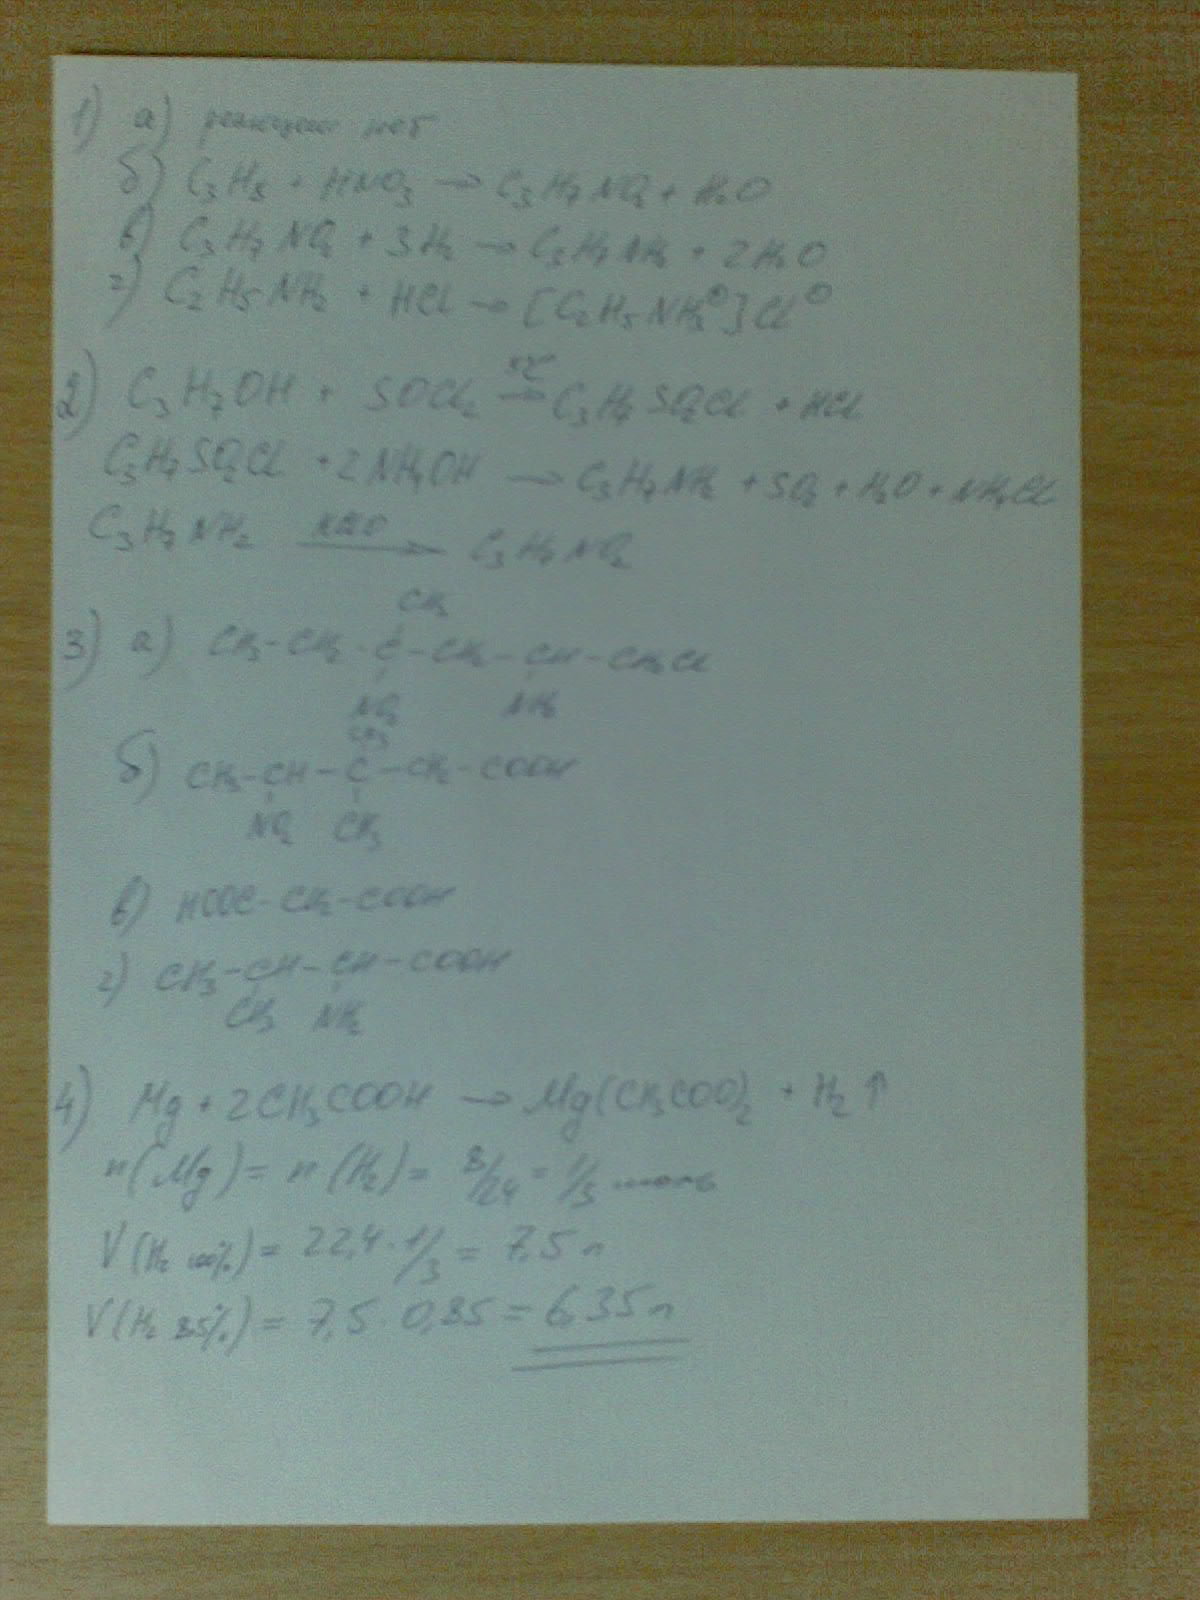 1) а) реакции нет
б) C₃H₈ + HNO₃ → C₃H₇NO₂ + H₂O
в) C₃H₇NO₂ + 3H₂ → C₃H₇NH₂ + 2H₂O
г) C₂H₅NH₂ + HCl → [C₂H₅NH₃⊕]Cl⊖
2) C₃H₇OH + SOCl₂ → C₃H₇SO₂Cl + HCl
C₃H₇SO₂Cl + 2NH₄OH → C₃H₇NH₂ + SO₂ + H₂O + NH₄Cl
C₃H₇NH₂ → C₃H₇NO₂
CH₃
3) а) CH₃-CH₂-C-CH₂-CH-CH₂Cl
NO₂ NH₂
CH₃
б) CH₃-CH-C-CH₂-COOH
NO₂ CH₃
в) HOOC-CH₂-COOH
г) CH₃-CH-CH-COOH
CH₃ NH₂
4) Mg + 2CH₃COOH → Mg(CH₃COO)₂ + H₂↑
n(Mg) = n(H₂) = 8/24 = 1/3 моль
V(H₂ 100%) = 22,4·1/3 = 7,5 л
V(H₂ 85%) = 7,5·0,85 = 6,35 л